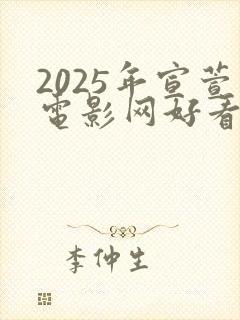 2025年宣萱
电影网好看
李仲生